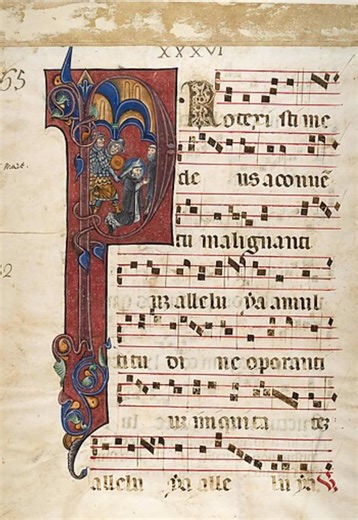 XXXVI
PRotexi sti me
de us a conuē
tu malignanti
uʒ allelu ya amul
titu di ne operanti
uʒ iniquita teʒ
allelu ya alle lu ya